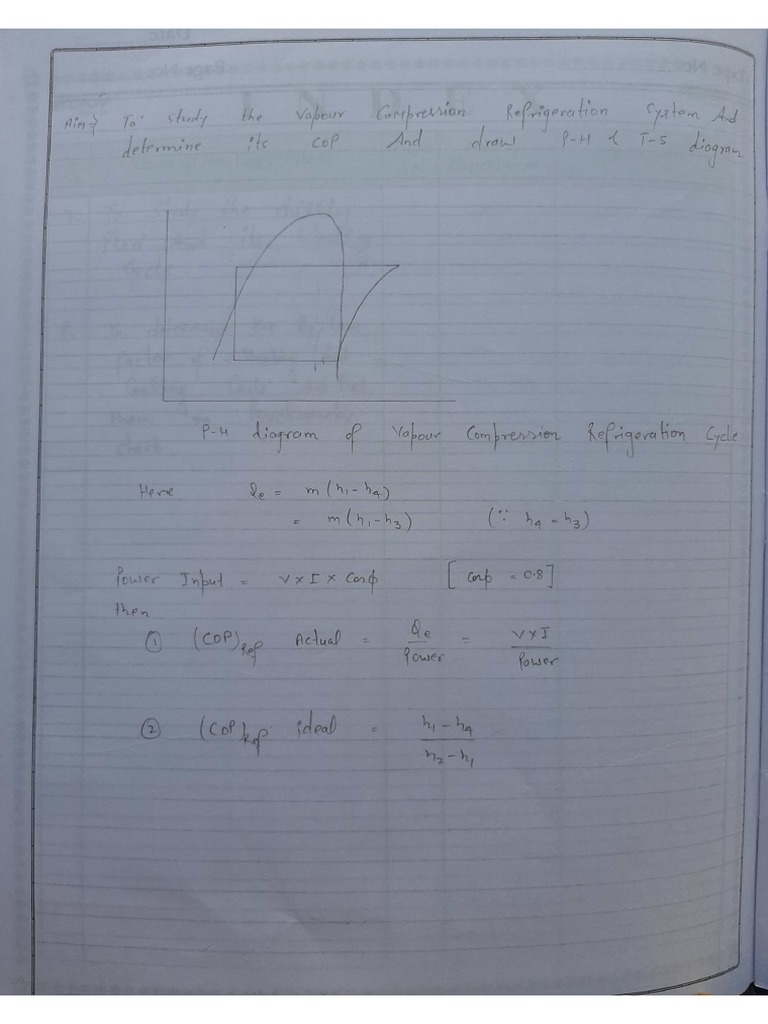 Aim⇒ To study the Vapour Compression Refrigeration System And
determine its COP And draw P-H & T-S diagram
P-H diagram of Vapour Compression Refrigeration Cycle
Here Qe = m(h1-h4)
= m(h1-h3) (∵ h4 = h3)
Power Input = V×I× Cosϕ [ Cosϕ = 0.8]
then
① (COP)Ref Actual = Qe/Power = V×I/Power
② (COP)Ref ideal = h1-h4/h2-h1